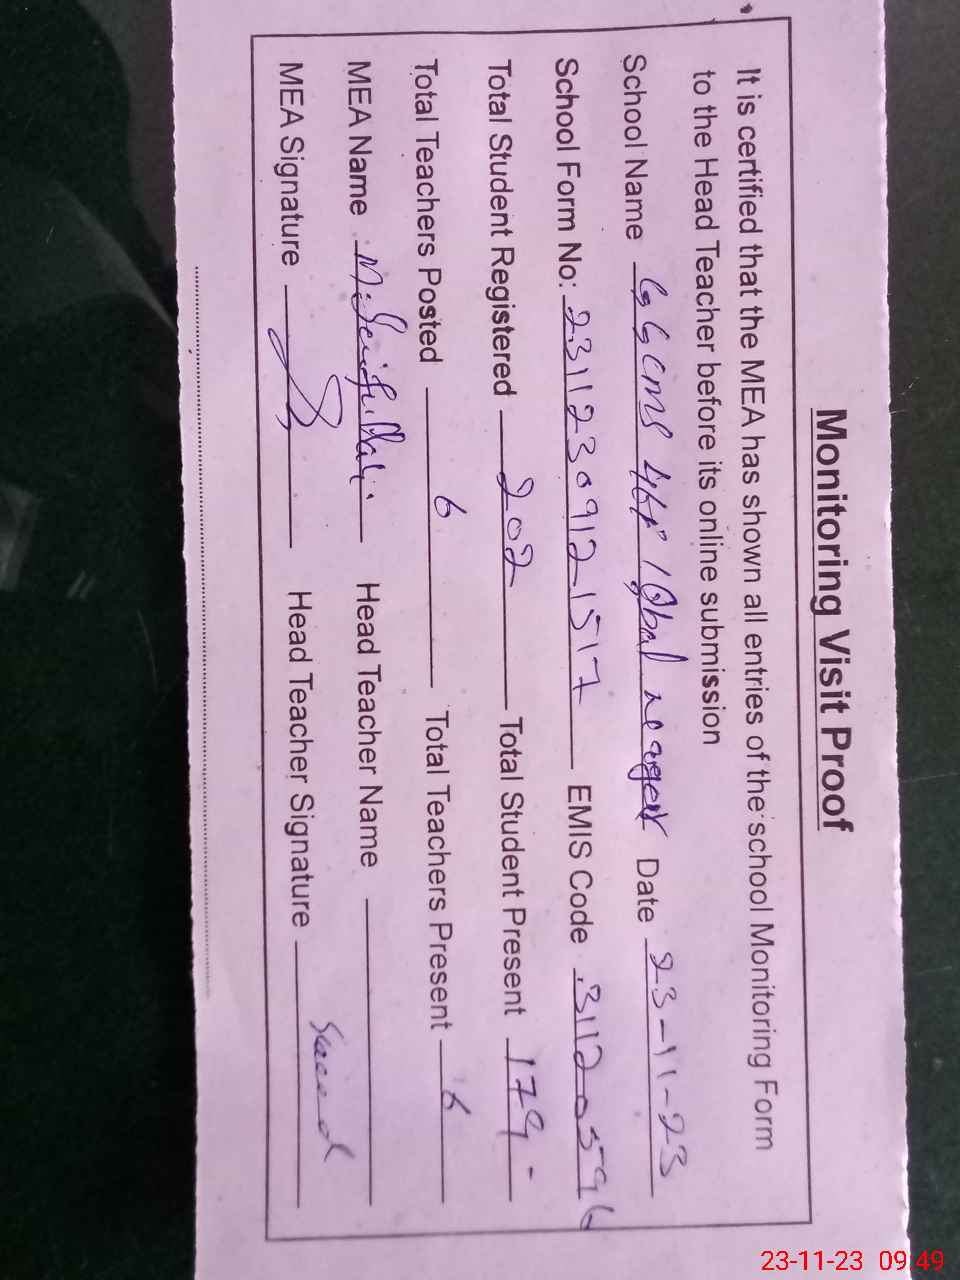 Monitoring Visit Proof
It is certified that the MEA has shown all entries of the school Monitoring Form
to the Head Teacher before its online submission
School Name GGCMS 46P Iqbal nagar Date 23-11-23
School Form No: 23112309121517 EMIS Code 31120596
Total Student Registered 202 Total Student Present 179
Total Teachers Posted 6 Total Teachers Present 6
MEA Name M. Saifullah Head Teacher Name
MEA Signature Head Teacher Signature Saeed
23-11-23 09:49